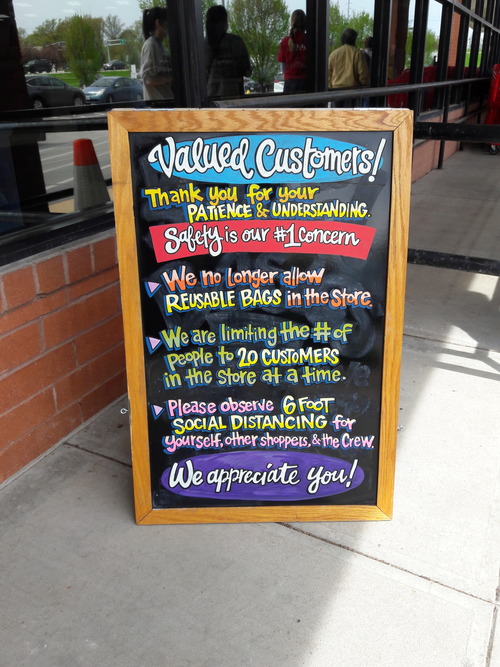 Valued Customers!
Thank you for your
PATIENCE & UNDERSTANDING.
Safety is our #1 concern
We no longer allow
REUSABLE BAGS in the Store.
We are limiting the # of
people to 20 CUSTOMERS
in the Store at a time.
Please observe 6 FOOT
SOCIAL DISTANCING for
yourself, other shoppers, & the Crew.
We appreciate you!